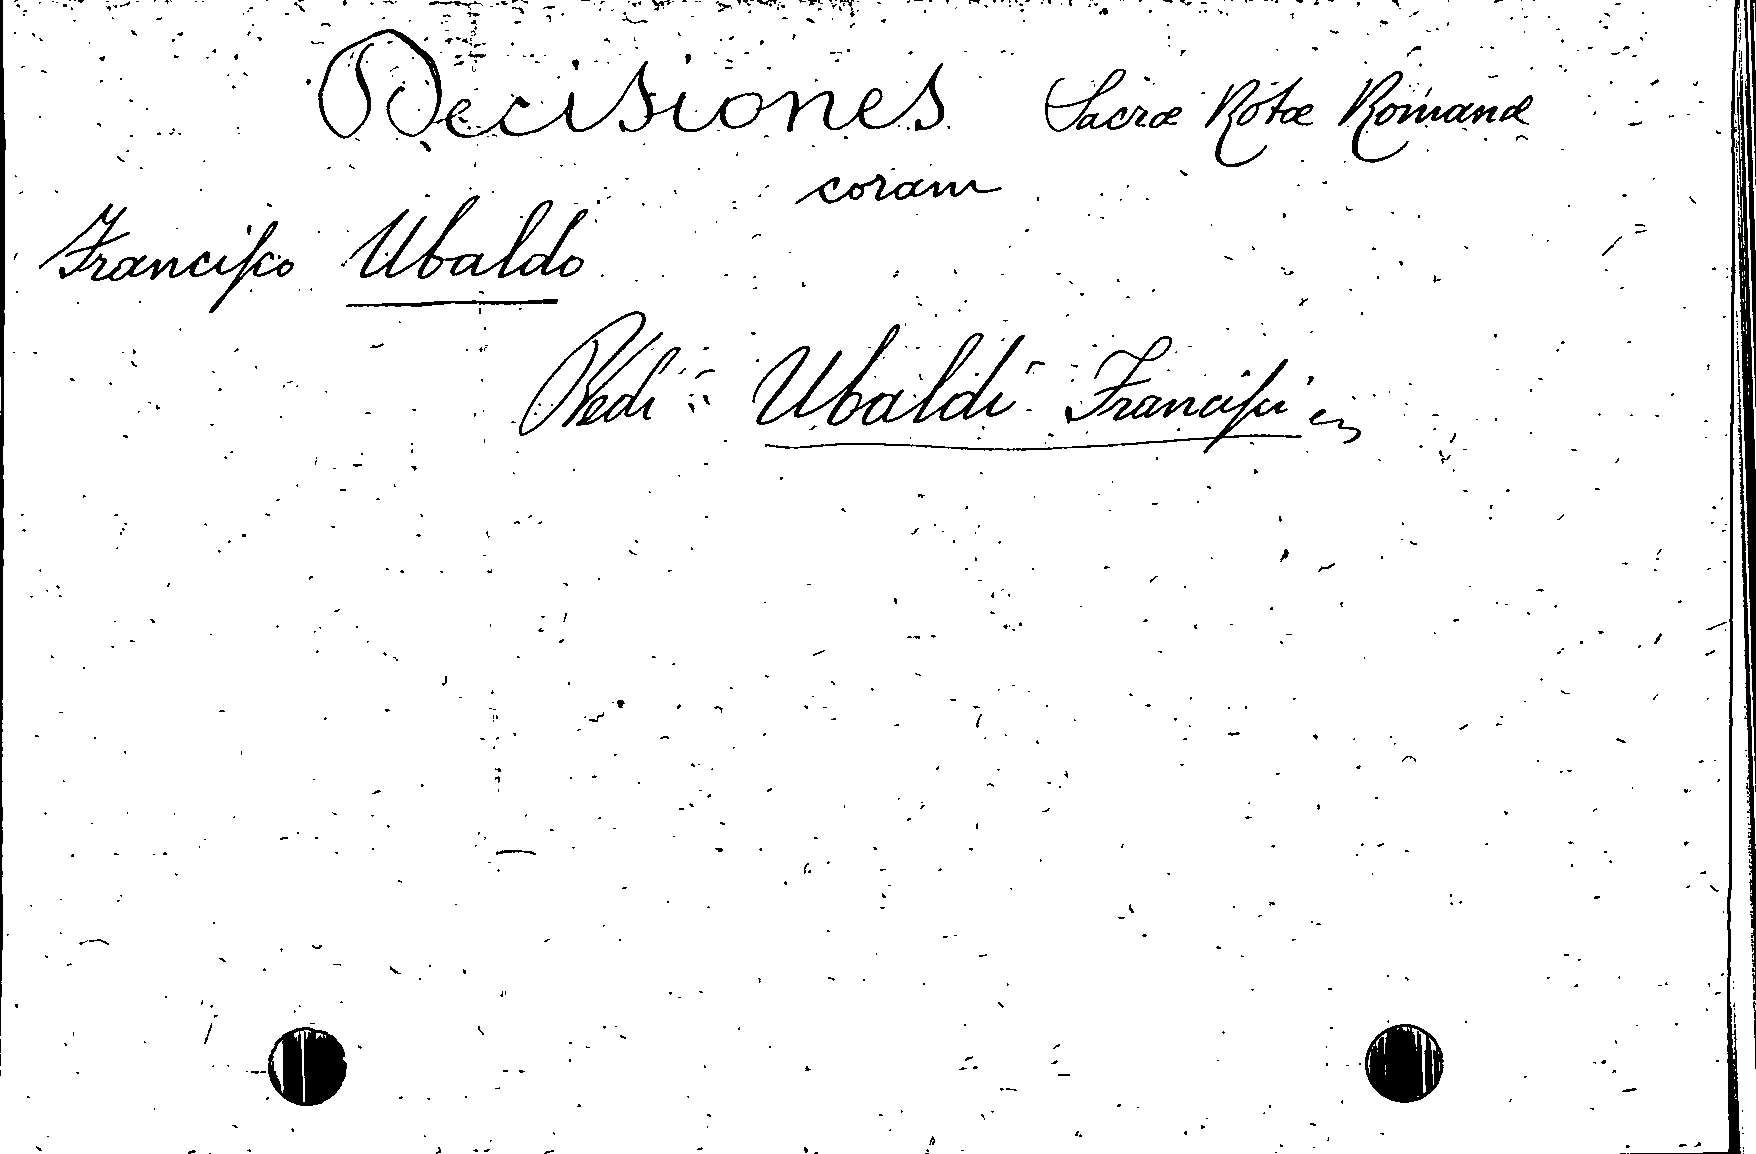 Decisiones Sacræ Rotæ Romanæ
coram
Francisco Ubaldo
Vedi: Ubaldi Francisci